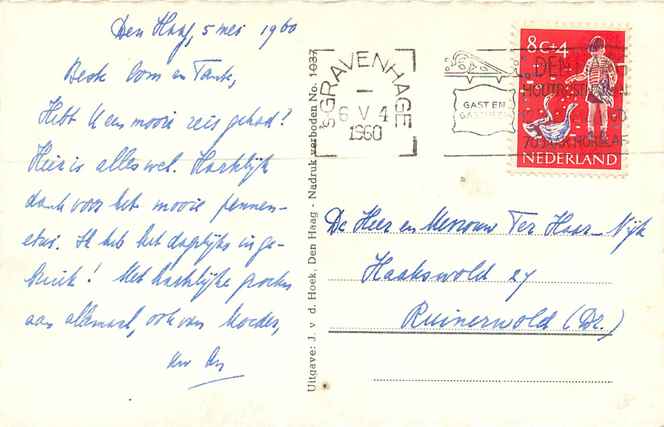 Den Haag, 5 mei 1960
Beste Oom en Tante,
Hebt U een mooie reis gehad?
Hier is alles wel. Hartelijk
dank voor het mooie pennen-
etui. Ik heb het dagelijks in ge-
bruik! Met hartelijke groeten
aan allemaal, ook van Moeder,
Uw
Uitgave: J. v. d. Hoek, Den Haag - Nadruk verboden No. 1037
'S-GRAVENHAGE
6 V 4
1960
GAST EN
8c+4
NEDERLAND
De Heer en Mevrouw Ter Haar-Nijk
Haakswold 27
Ruinerwold (Dr.)